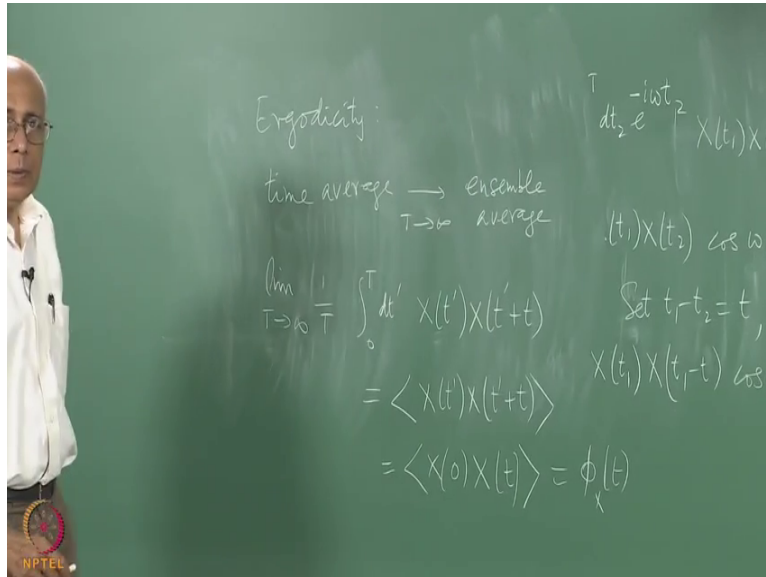 Ergodicity:
time average → ensemble average
T→∞
lim T→∞ 1/T ∫₀ᵀ dt' X(t')X(t'+t)
= ⟨X(t')X(t'+t)⟩
= ⟨X(0)X(t)⟩ = ϕₓ(t)
T
dt₂ e^{-iωt₂} X(t₁)X
(t₁)X(t₂) cos ω
Set t₁-t₂ = t,
X(t₁)X(t₁-t) cos
NPTEL